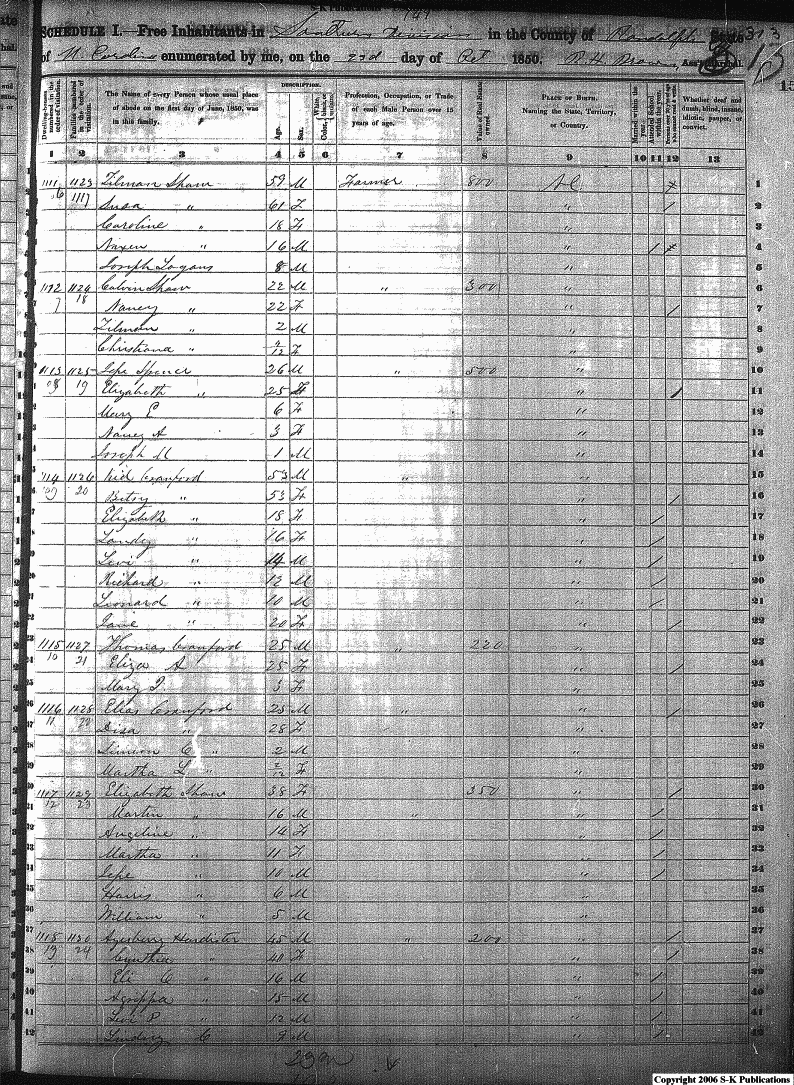 S-K Publications
747
SCHEDULE I. Free Inhabitants in Southern Division in the County of Randolph State 313
of N. Carolina enumerated by me, on the 22d day of Oct 1850. Ass't Marshal.
Dwelling-houses numbered in the order of visitation. Families numbered in the order of visitation. The Name of every Person whose usual place of abode on the first day of June, 1850, was in this family. DESCRIPTION. Age. Sex. Color, White, black, or mulatto. Profession, Occupation, or Trade of each Male Person over 15 years of age. Value of Real Estate owned. PLACE OF BIRTH. Naming the State, Territory, or Country. Married within the year. Attended School within the year. Persons over 20 y'rs of age who cannot read & write. Whether deaf and dumb, blind, insane, idiotic, pauper, or convict.
1 2 3 4 5 6 7 8 9 10 11 12 13
1 1111 1123 Tilman Shaw 59 M Farmer 800 NC 1
6 1117 Susa " 61 F " / 2
Caroline " 18 F " 3
" 16 M " / 4
Joseph Logans 8 M " 5
1112 1124 Calvin Shaw 22 M " 300 " 6
7 18 Nancy " 22 F " / 7
Tilman " 2 M " 8
Christiana " /12 F " 9
1113 1125 Spencer 26 M " 500 " 10
08 19 Elizabeth " 25 F " / 11
Mary E 6 F " 12
Nancy A 3 F " 13
Joseph M 1 M " 14
1114 1126 Cranford 53 M " " 15
09 20 Betsy " 53 F " / 16
Elizabeth " 18 F " / 17
Landy " 16 F " / 18
Levi " 14 M " / 19
Richard " 12 M " / 20
Leonard " 10 M " / 21
Jane " 20 F " / 22
1115 1127 Thomas Cranford 25 M " 220 " 23
10 21 Eliza A 25 F " / 24
Mary 3 F " 25
1116 1128 Elias Cranford 25 M " " / 26
11 22 Disa " 28 F " 27
Simeon C " 2 M " 28
Martha L " 2/12 F " 29
1117 1129 Elizabeth Shaw 38 F 350 " / 30
12 23 Martin " 16 M " " / 31
Angeline " 14 F " / 32
Martha " 11 F " / 33
" 10 M " / 34
Harris " 6 M " 35
William " 5 M " 36
1118 1130 Hardister 45 M " 200 " / 37
13 24 Cynthia " 40 F " / 38
Eli C " 16 M " / 39
Agrippa " 15 M " / 40
Levi P " 12 M " / 41
Lindsey C 9 M " / 42
Copyright 2006 S-K Publications